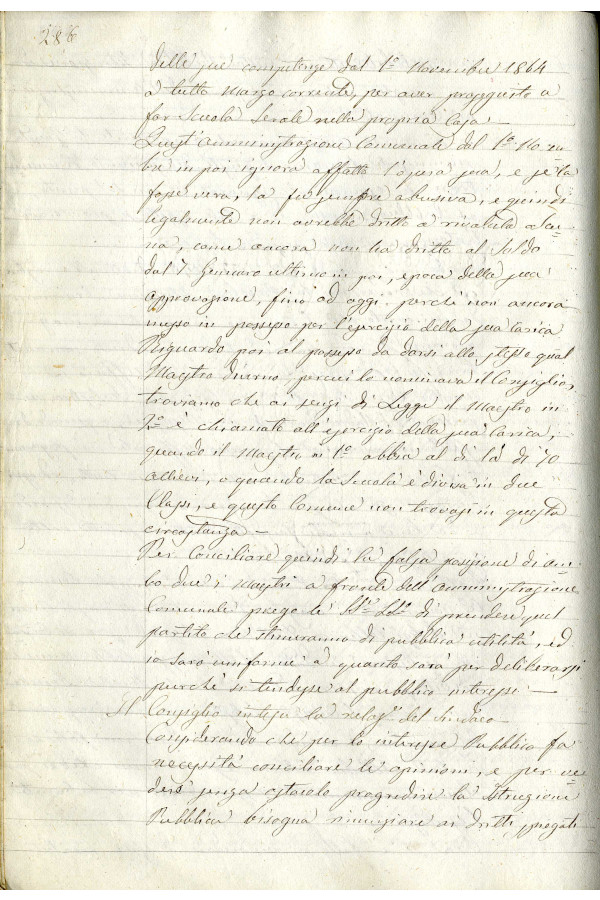 286
delle sue competenze dal 1º Novembre 1864
a tutto Marzo corrente, per aver proseguito a
far Scuola Serale nella propria Casa.
Quest'Amministrazione Comunale dal 1º Novem=
bre in poi ignora affatto l'opera sua, e se la
fosse vera, la fu sempre abusiva, e quindi
legalmente non avrebbe dritto a rivaluta alcu=
na, come ancora non ha dritto al Soldo
dal 7 Gennaro ultimo in poi, epoca della sua
approvazione, fino ad oggi perchè non ancora
messo in possesso per l'esercizio della sua Carica
Riguardo poi al possesso da darsi allo stesso qual
Maestro diurno, per cui lo nominava il Consiglio,
troviamo che ai sensi di Legge il Maestro in
2º è chiamato all'esercizio della sua Carica,
quando il Maestro in 1º abbia al di là di 70
allievi, o quando la Scuola è divisa in due
Classi, e questo Comune non trovasi in questa
circostanza —
Per Conciliare quindi la falsa posizione di am=
bo due i Maestri a fronte dell'Amministrazione
Comunale prego le SS.º LL.º di prendere quel
partito che stimeranno di pubblica utilità, ed
io sarò uniforme a quanto sarà per deliberarsi
purchè si tendesse al pubblico interesse —
Il Consiglio intesa la relaz.ne del Sindaco
Considerando che per lo interesse Pubblico fa
necessità conciliare le opinioni, e per ve=
dersi senza ostacolo progredire la Istruzione
Pubblica bisogna rinunziare ai dritti spegati